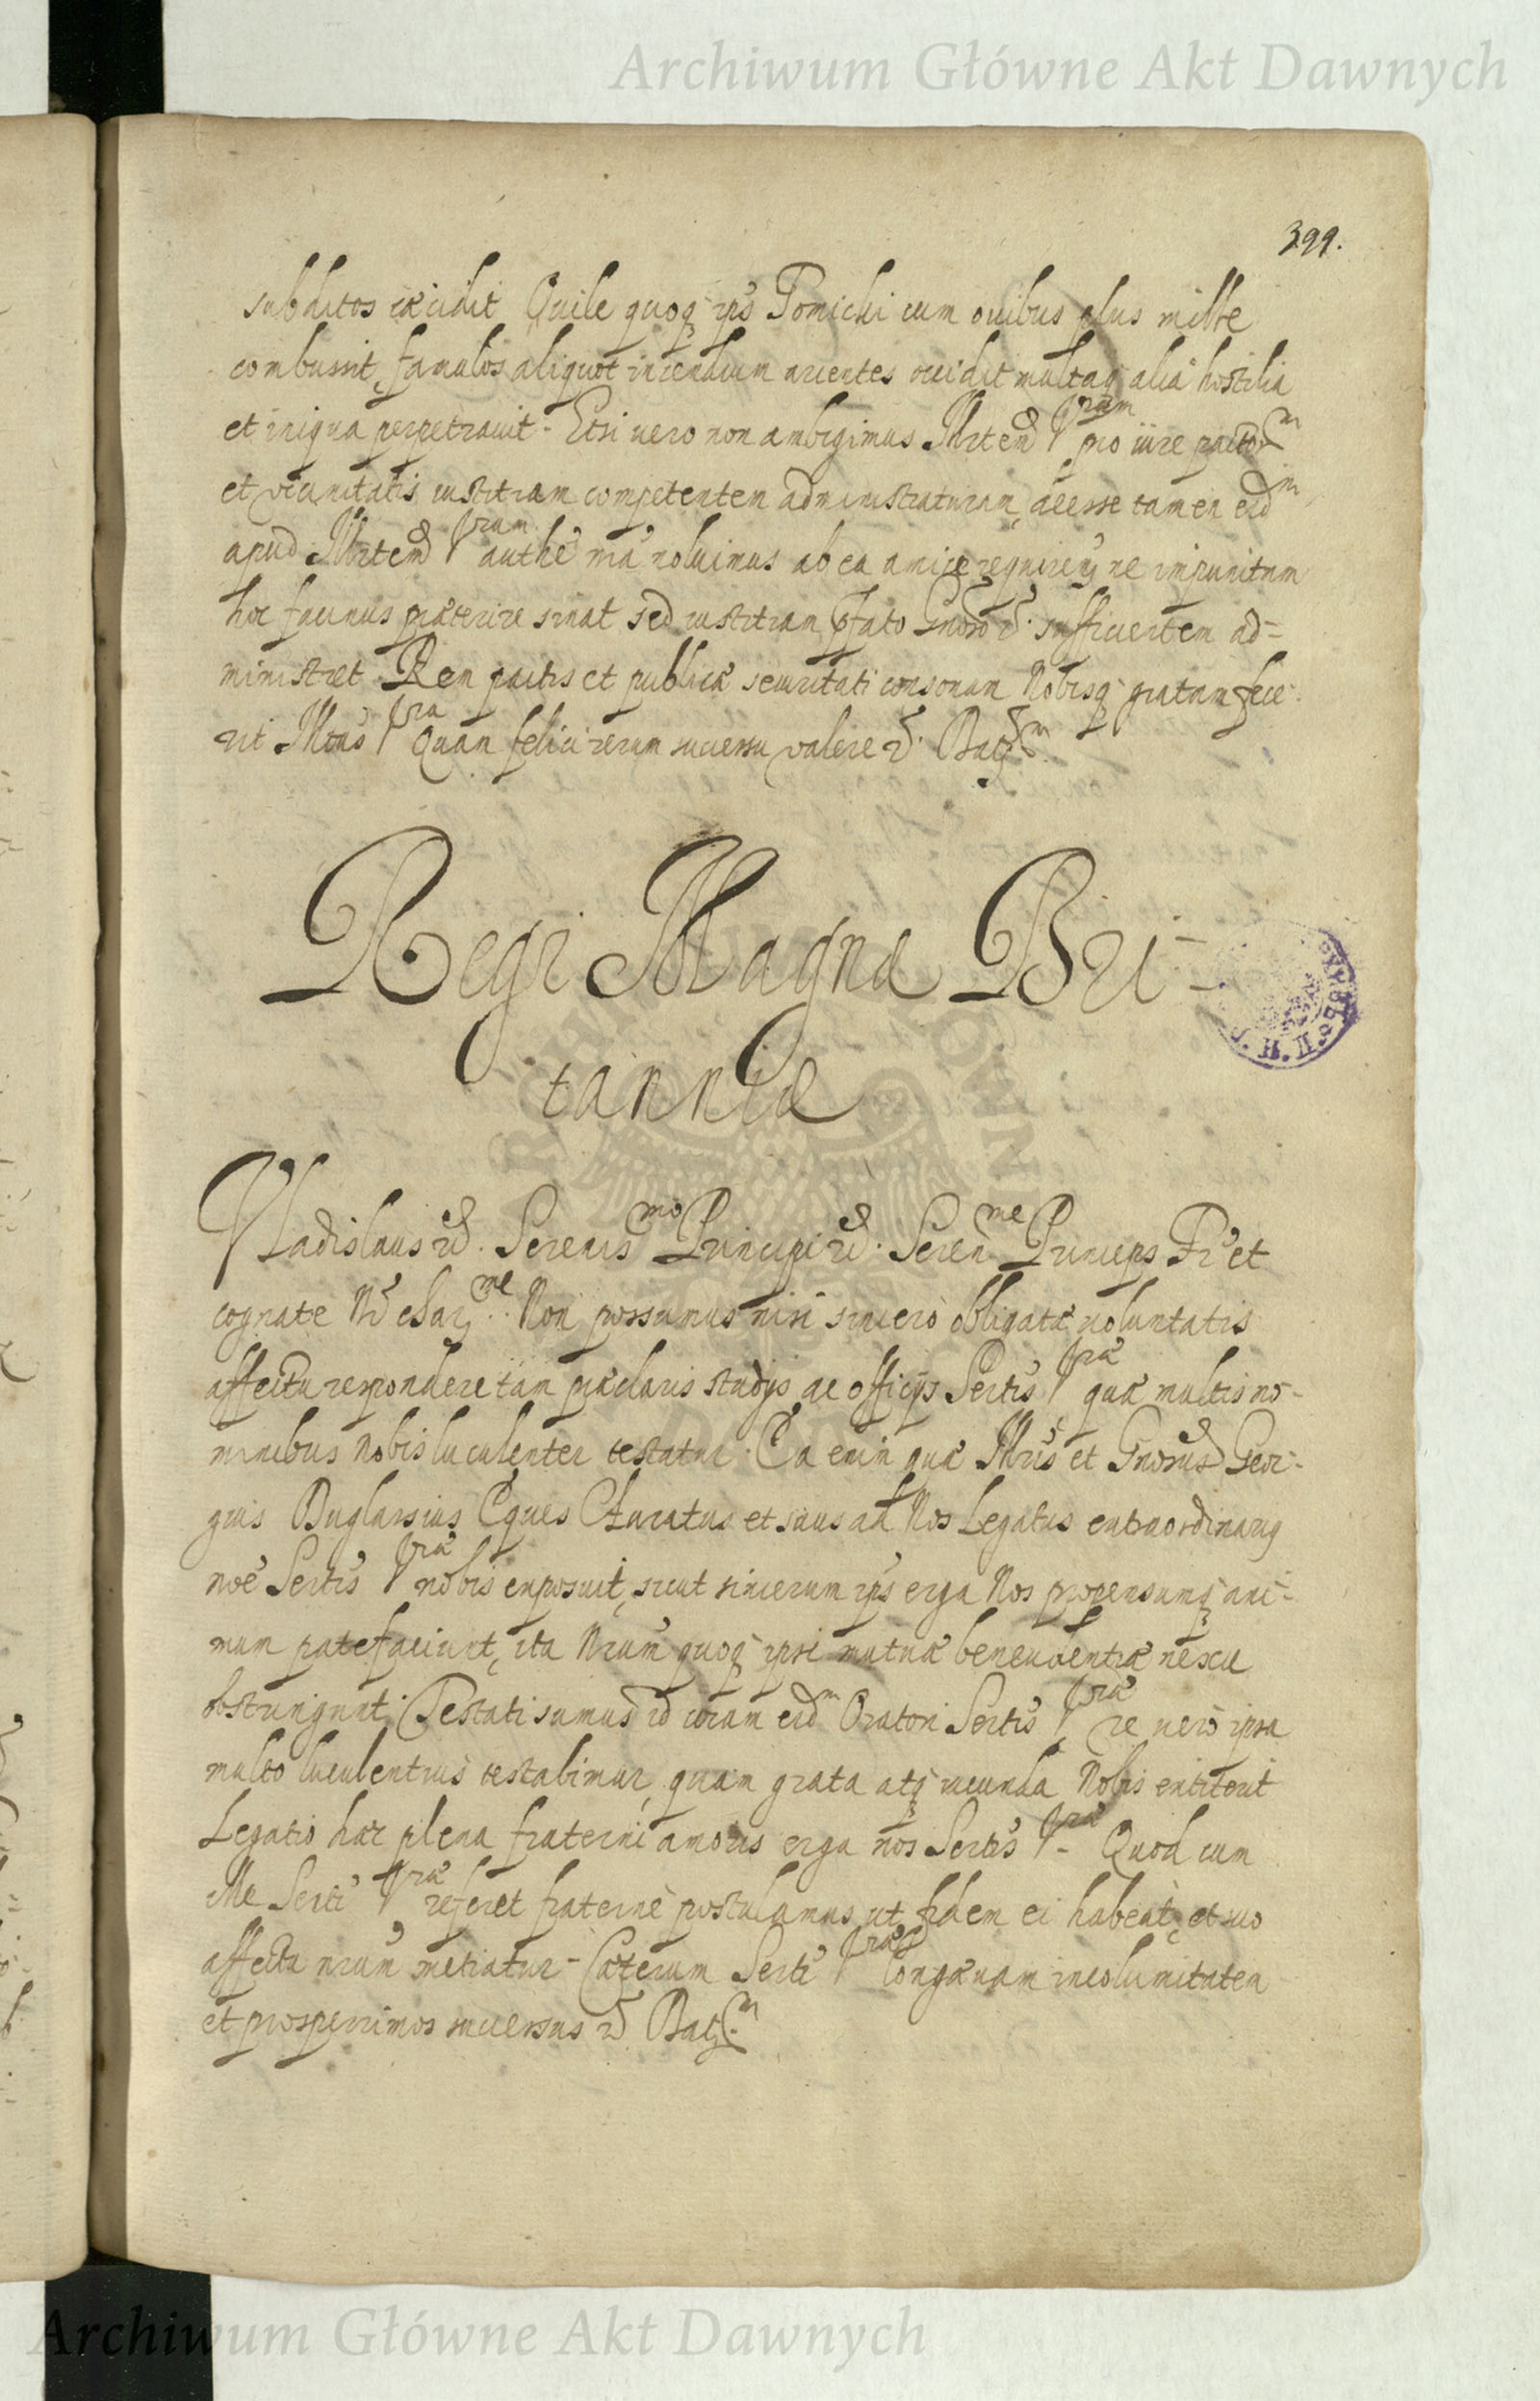 Archiwum Główne Akt Dawnych
399.
subditos excidit Ouile quoq ips Tomicki cum ouibus plus mille
combussit, famulos aliquot incendium arcentes occidit multaq alia hostilia
et iniqua perpetrauit - Etsi uero non ambigimus Ill̃rtem Vram pro iure pactor
et vicinitatis iustitiam competentem administraturam, deesse tamen eidm
apud Ill̃rtem Vram authẽ nrã noluimus ab ea amice requiren ne impunitum
hoc facinus præterire sinat sed iustitiam pfato Gnoso d. sufficientem ad=
ministret. Rem pactis et publicæ securitati consonam Nobisq gratam fece-
rit Ill̃rtas Vra Quam felici rerum successu valere d. Datz.m
Regi Magnæ Bri-
tanniæ
Vladislaus d. Serenismo Principi d. Serenme Princeps Fr̃ et
cognate N̄r charme. Non possumus nisi sincero obligatæ uoluntatis
affectu respondere tam præclaris studijs ac officijs Sertis Vræ quæ multis no-
minibus Nobis luculenter testatur. Ea enim quæ Ill̃ris et Gnosus Geor-
gius Duglassius Eques Auratus et suus ad Nos Legatus extraordinariq
noẽ Sertis Vræ nobis exposuit, sicut sincerum ips erga Nos propensumq ani-
mum patefaciunt, ita Nrum quoq ipsi mutuæ beneuolentiæ nexu
obstringunt. Testati sumus id coram eidm Oratori Sertis Vræ re uero ipsa
multo luculentius testabimur, quam grata atq iucunda Nobis extiterit
Legatio hæc plena fraterni amoris erga nos Sertis Vræ - Quod cum
ille Serti Vræ referet fraternè postulamus ut fidem ei habeat, et suo
affectu nrum metiatur - Cæterum Serti Vræ longæuam incolumitatem
et prosperrimos successus d Datz.m
Archiwum Główne Akt Dawnych